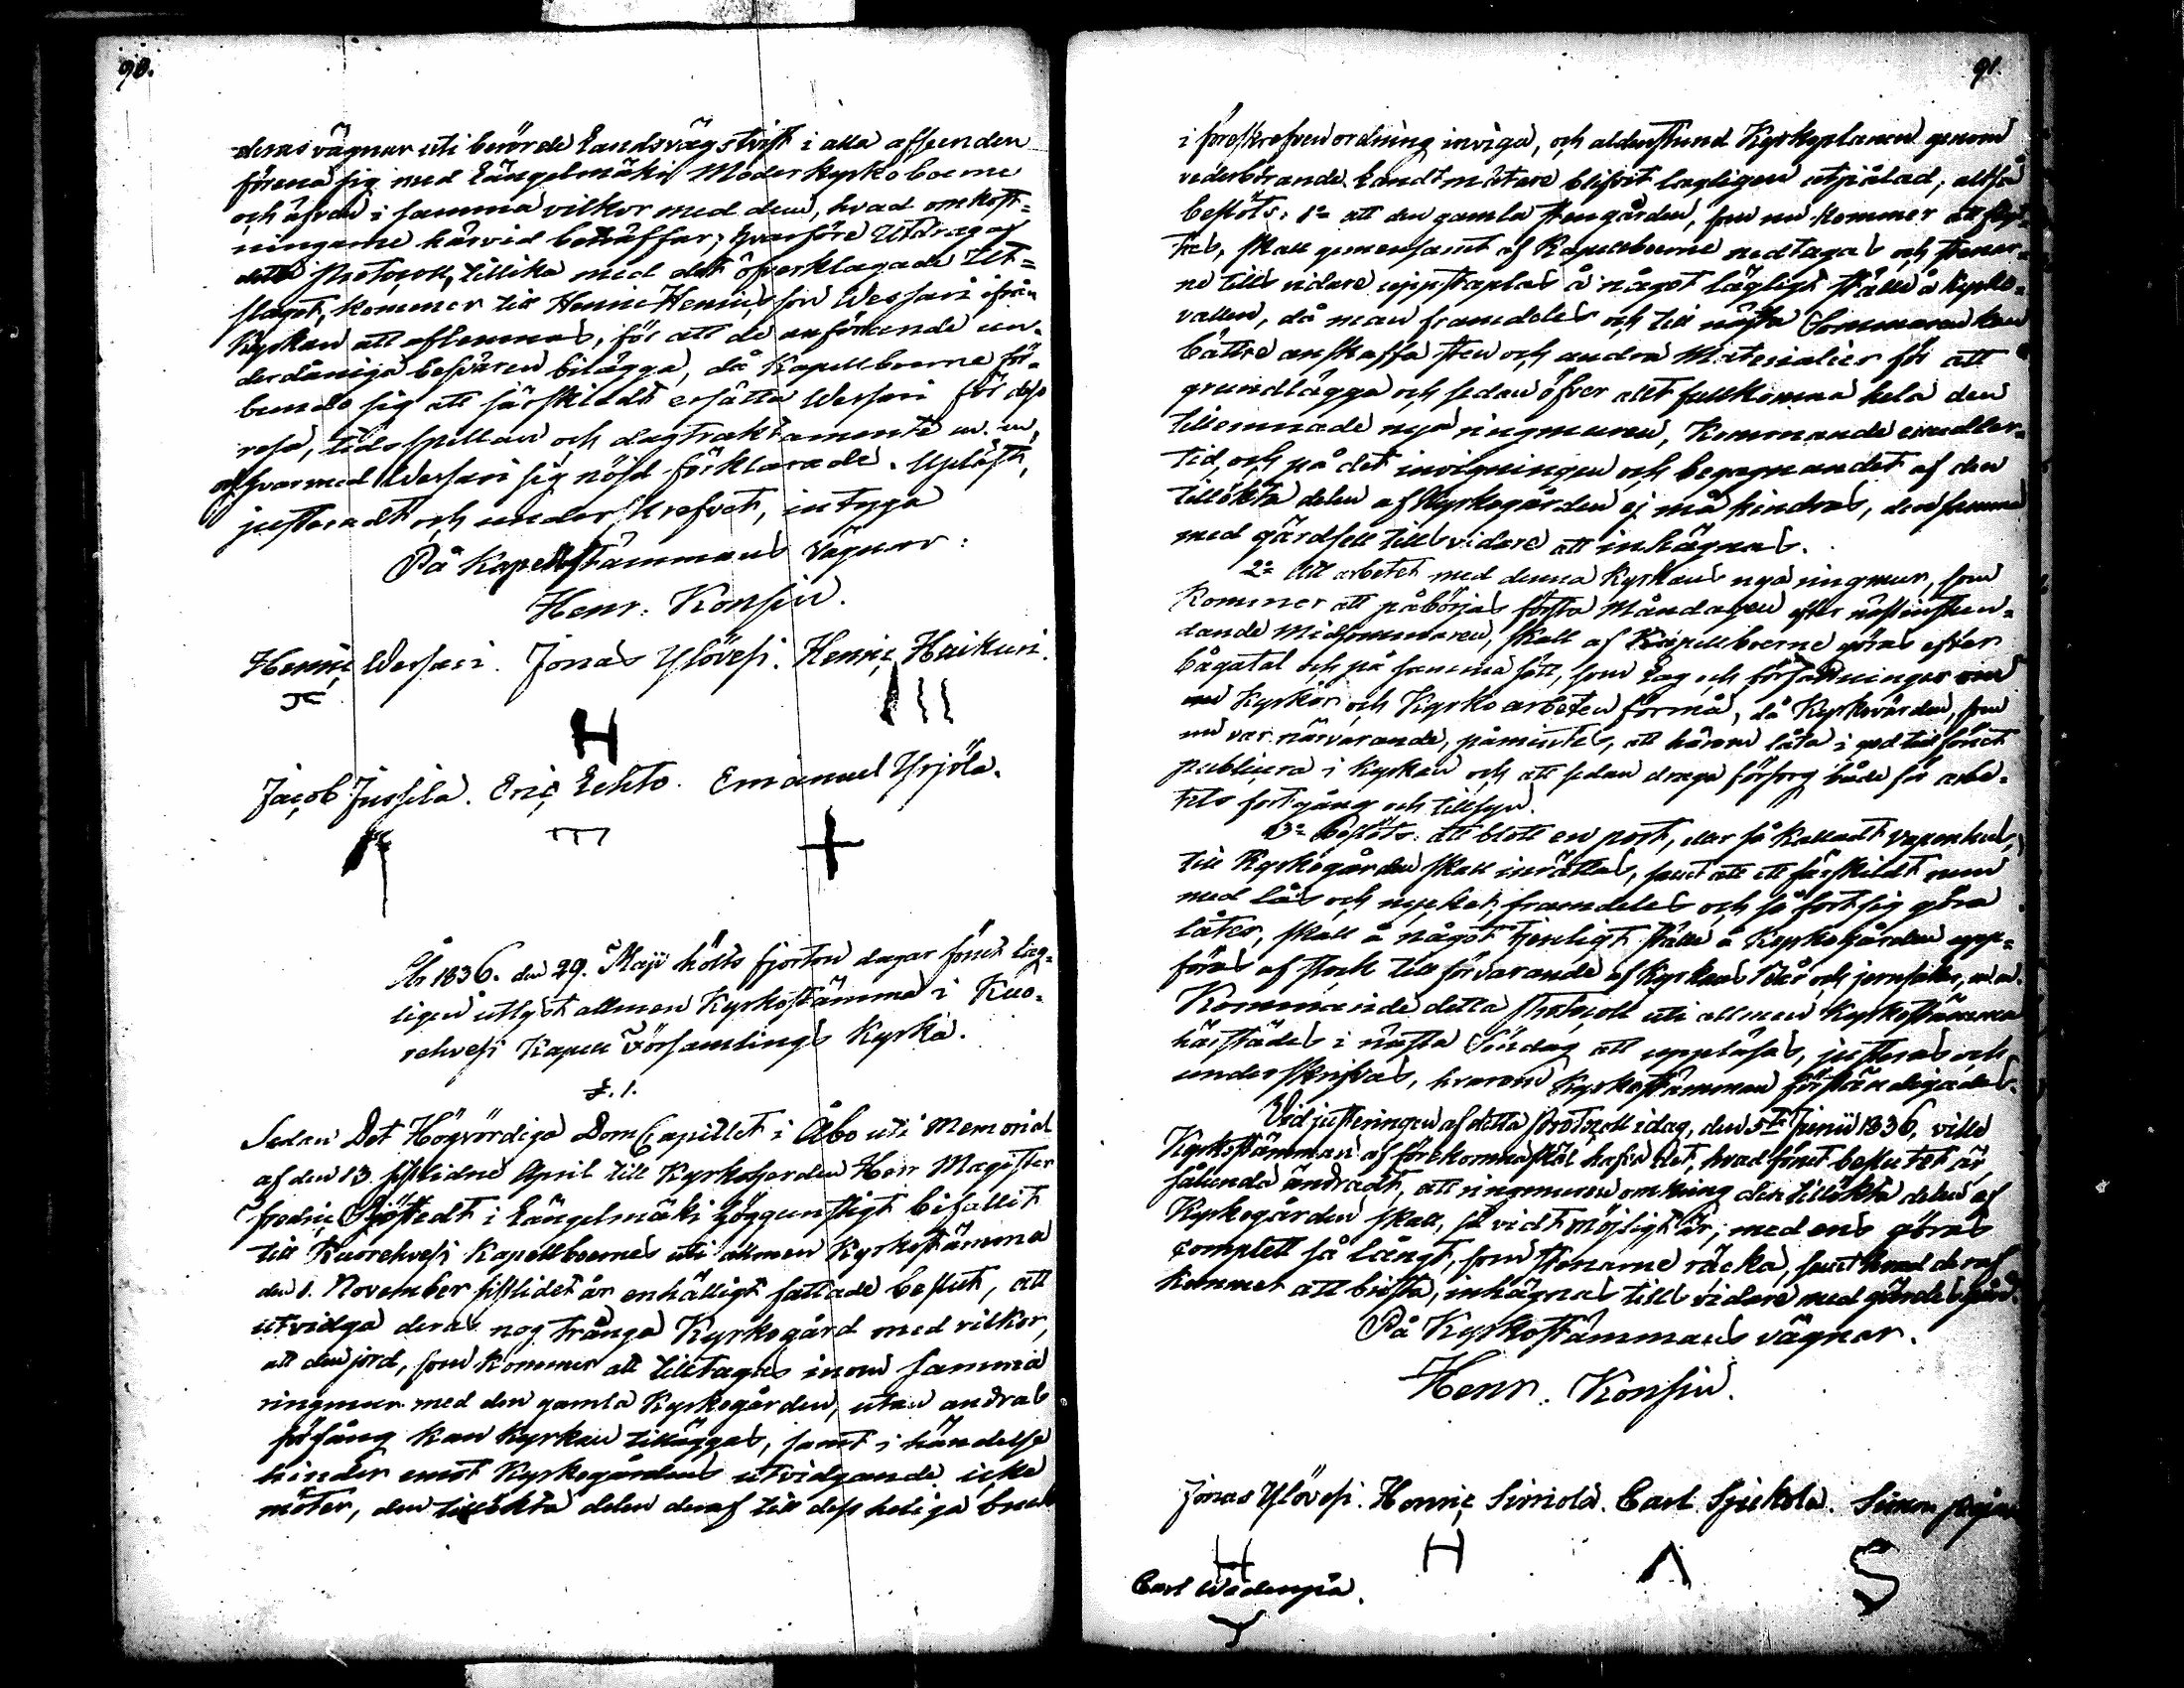 90.
deras vägnar uti berörde Landsvägstvist i alla afseenden
förena sig med Längelmäki Moderkyrkoboerne
och äfven i samma vilkor med dem, hvad omkost=
ningarne härvid beträffar; hvarföre Utdrag af
detta Protocoll, tillika med det öfverklagade Ut=
slaget, kommer till Henric Henricsson Wessari ifrån
Kyrkan att aflemnas, för att de anförande un=
derdåniga besvären bilägga, då Kapellboerne för=
bundo sig att särskildt ersätta Wessari för dess
resa, tidsspillan och dagtraktamente m. m,
hvarmed Wessari sig nöjd förklarade. Upläst,
justeradt och underskrefvet, intyga
På Kapellstämmans vägnar:
Henr: Konsin.
Henric Wessari. Jonas Ylövesi. Henric Heikuri.
Jacob Jussila. Eric Lehto. Emanuel Yrjölä.
År 1836. den 29. Maji hölts fjorton dagar förut lag=
ligen utlyst allmen Kyrkostämma i Kuo=
rehvesi Kapell Församlings Kyrka.
§. 1.
Sedan Det Högvördiga DomCapitlet i Åbo uti Memorial
af den 13. sistlidne April till Kyrkoherden Herr Magister
Fredric Sjöstedt i Längelmäki höggunstigt bifallit
till Kuorehvesi Kapellboernes uti allmen Kyrkostämma
den 1. November sistlidet år enhälligt fattade beslut, att
utvidga deras nog trånga Kyrkogård med vilkor,
att den jord, som kommer att tilltagas inom samma
ringmur med den gamla Kyrkogården, utan andras
förfång kan Kyrkan tilläggas, samt i händelse
hinder emot Kyrkogårdens utvidgande icke
möter, den tillökta delen deraf till dess heliga bruk
91.
i föreskrefven ordning inviga, och aldenstund Kyrkoplanen genom
vederbörande Landtmätare blifvit lagligen utpålad; altså
beslöts: 1o att den gamla stengården, som nu kommer att flyt=
tas, skall gemensamt af Kapellboerne nedtagas och stenar=
ne tills vidare uppstaplas å något lägligt ställe å Kyrko=
vallen, då man framdeles och till nästa Sommaren kan
bättre anskaffa sten och andra Materialier för att
grundlägga och sedan öfver allt fullkomna hela den
tillemnade nya ringmuren, Kommande emedler=
tid, och på det invigningen och begagnandet af den
tillökta delen af Kyrkogården ej må hindras, densamma
med gärdsell tills vidare att inhägnas.
2o Att arbetet med denna Kyrkans nya ringmur, som
kommer att påbörjas första Måndagen efter nästinstun=
dande Midsommaren, skall af Kapellboerne göras efter
bågatal och på samma sätt, som Lag och författningar om
Kyrkor och Kyrkoarbeten förmå, då Kyrkvärden, som
nu var närvarande, påmintes, att härom låta i god tid förut
publicera i Kyrkan och att sedan draga försorg både för arbe=
tets fortgång och tillsyn.
3o Beslöts: att blott en port, eller så kalladt vapenhus,
till Kyrkogården skall inrättas, samt att ett särskildt rum
med lås och nyckel, framdeles och så fort sig göra
låter, skall å något tjenligt ställe å Kyrkogården upp=
föras af stock till förvarande af Kyrkans tjär och jernsaker, m.m.
Kommande detta Protocoll uti allmen Kyrkostämma
härstädes i nästa Söndag att uppläsas, justeras och
underskrifvas, hvarom Kyrkostämman förständigades.
Vid justeringen af detta Protocoll idag, den 5te Junii 1836, ville
Kyrkostämman af förekomna skäl hafva det, hvad förut beslutet är,
sålunda ändradt, att ringmuren omkring den tillökta delen af
Kyrkogården skall, så vidt möjligt är, med ens göras
complett så långt, som stenarne räcka, samt hvad deraf
kommer att brista, inhägnas tills vidare med
På Kyrkostämmans vägnar.
Henr. Konsin.
Jonas Ylövesi. Henric Simola. Carl Sjukola. Simon
Carl